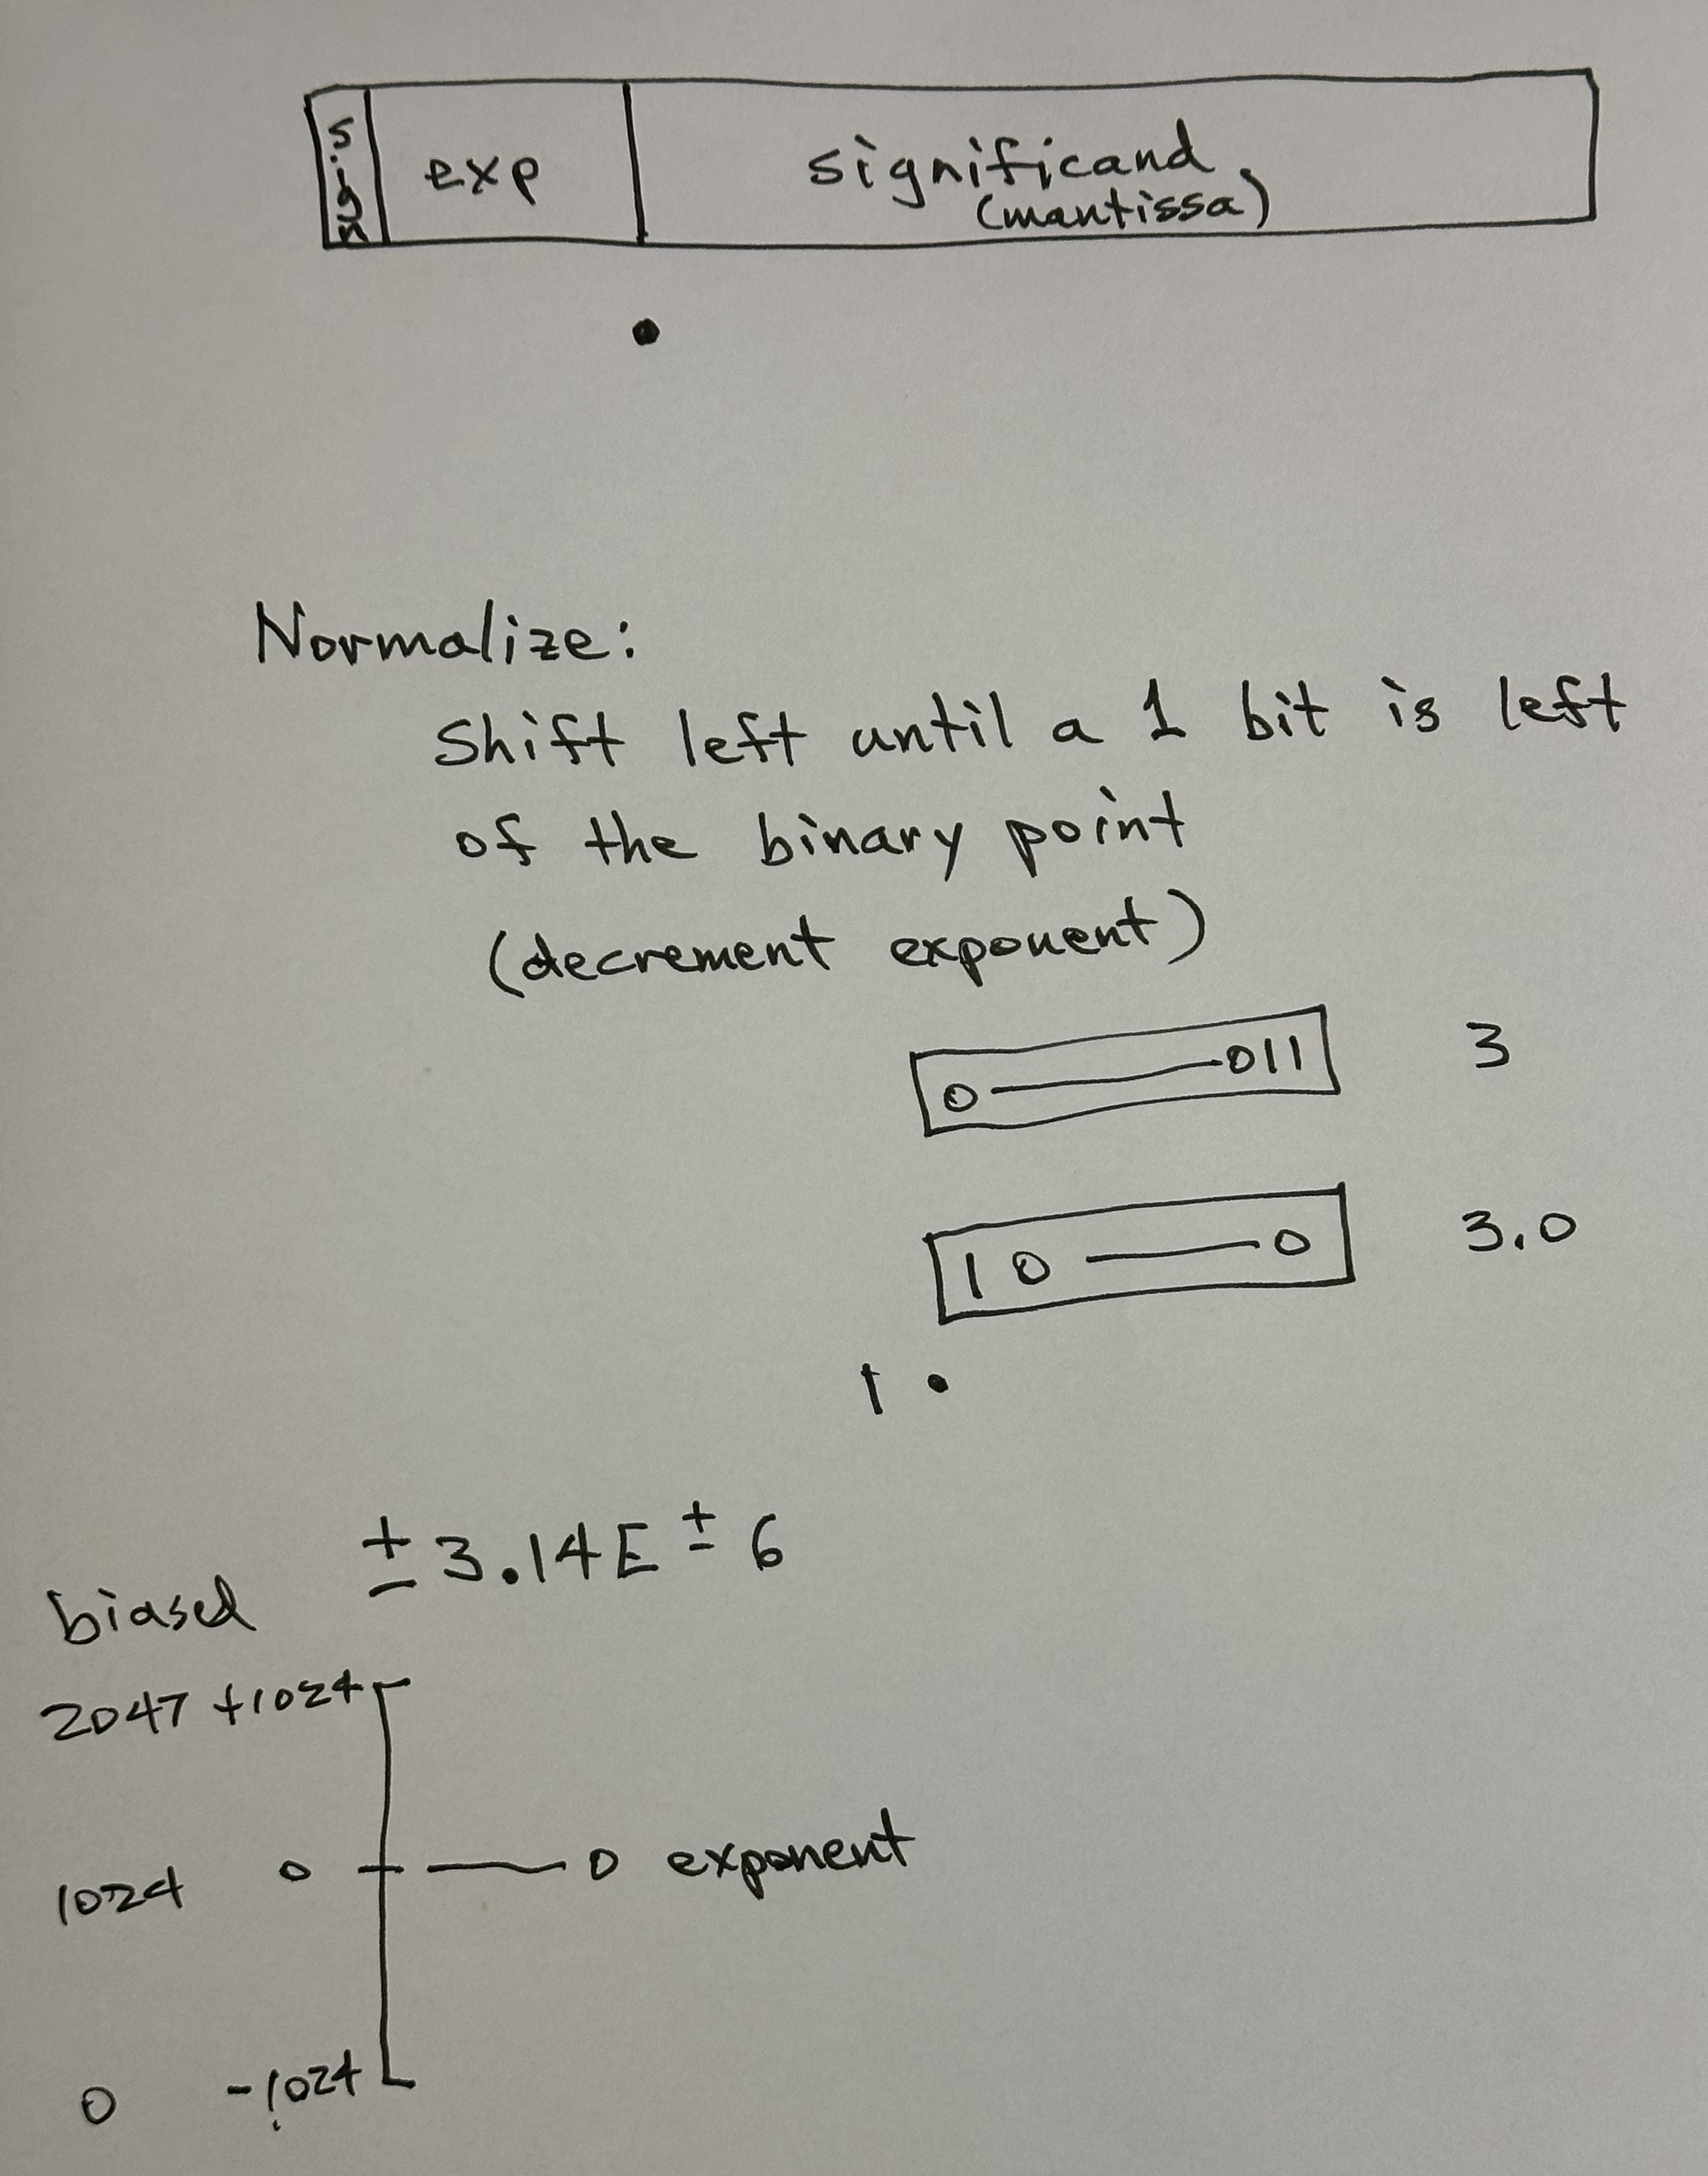 sign exp significand
(mantissa)
Normalize:
Shift left until a 1 bit is left
of the binary point
(decrement exponent)
0 011 3
1 0 0 3.0
1 .
± 3.14E ± 6
biased
2047 +1024
1024 0 0 exponent
0 -1024